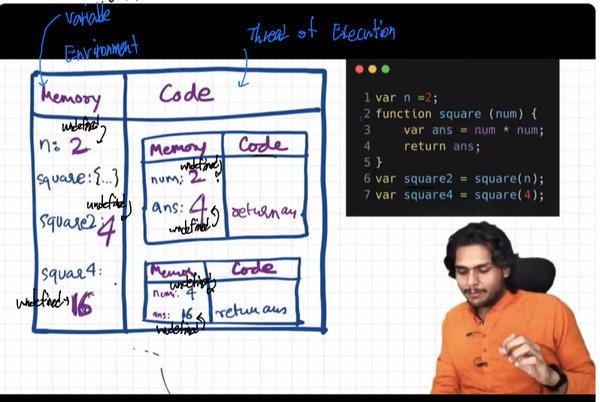 Variable
Environment
Thread of Execution
Memory
Code
undefined
n: 2
square: {...}
undefined
square2: 4
squar4:
undefined 16
Memory
Code
undefined
num: 2
ans: 4
undefined
return an
Memory
Code
undefined
num: 4
ans: 16
undefined
return ans
1 var n =2;
2 function square (num) {
3 var ans = num * num;
4 return ans;
5 }
6 var square2 = square(n);
7 var square4 = square(4);